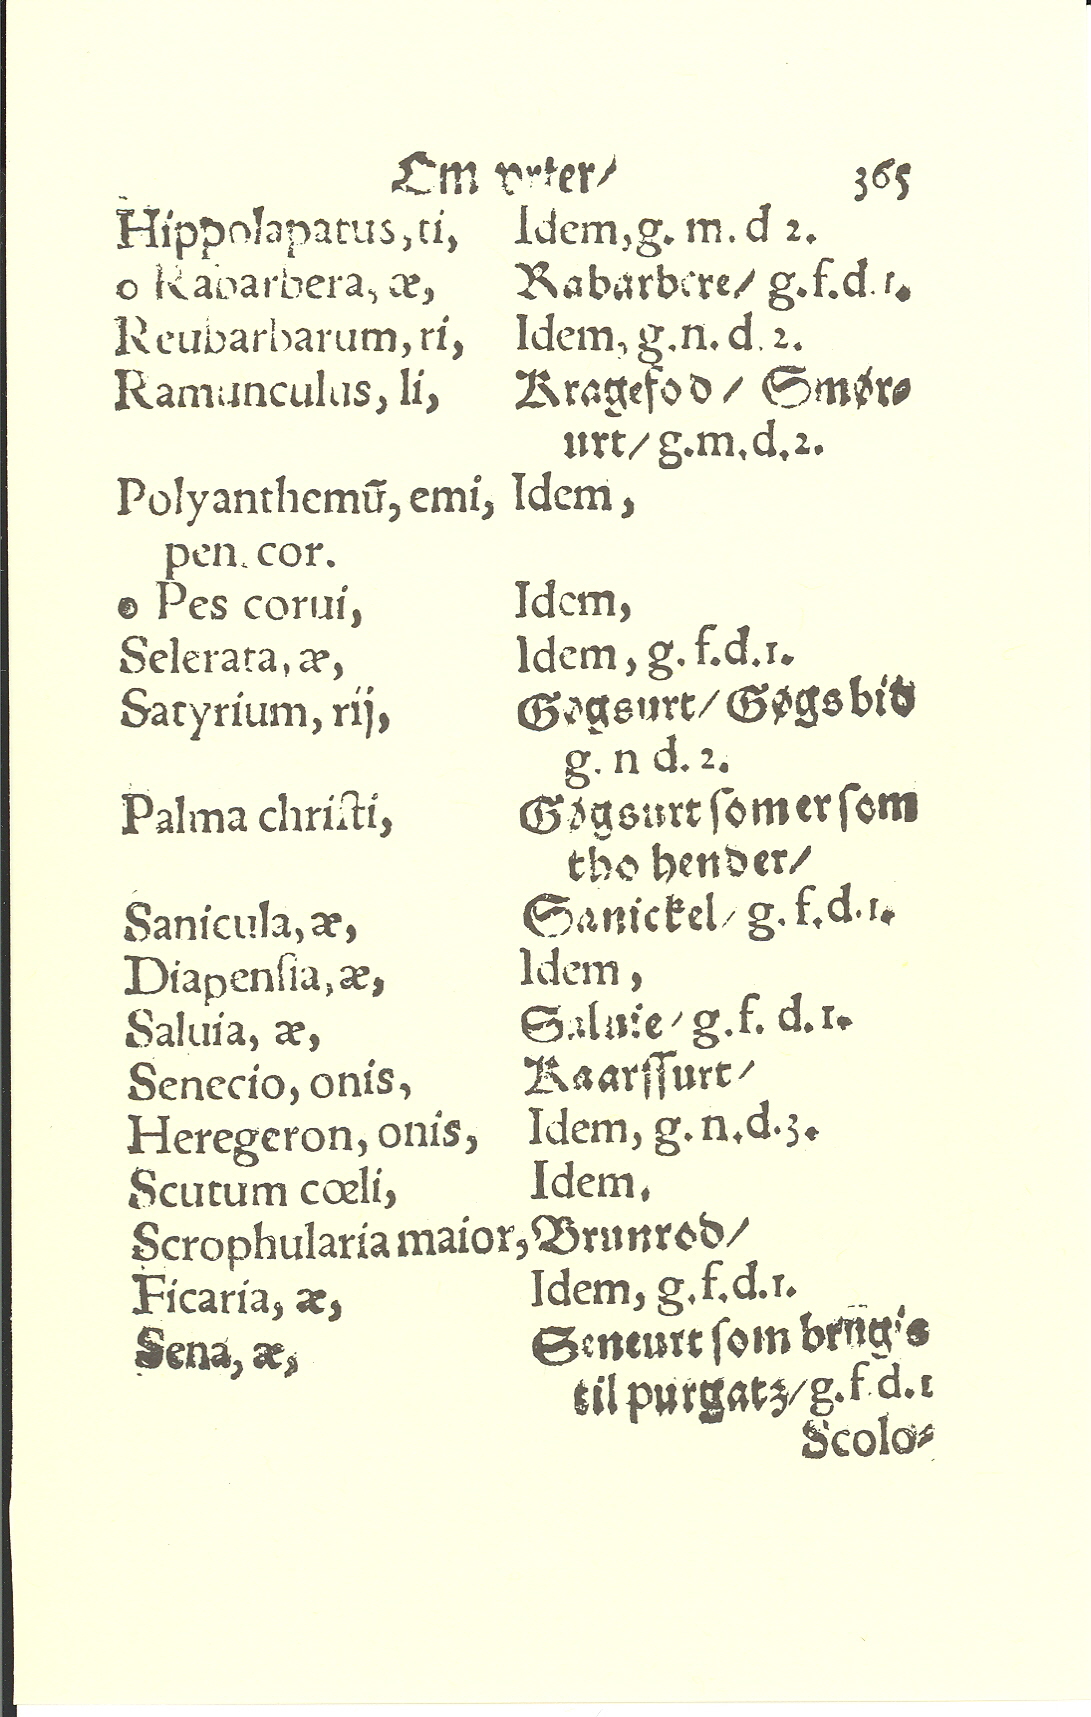 Om vrter/ 365
Hippolapatus, ti, Idem, g. m. d 2.
o Rabarbera, æ, Rabarbere/ g. f. d. 1.
Reubarbarum, ri, Idem, g. n. d. 2.
Ramunculus, li, Kragefod/ Smør⸗
urt/ g. m. d. 2.
Polyanthemū, emi, Idem,
pen. cor.
o Pes corui, Idem,
Selerata, æ, Idem, g. f. d. 1.
Satyrium, rij, Gøgsurt/ Gøgsbid
g. n d. 2.
Palma chriſti, Gøgsurt ſom er ſom
tho hender/
Sanicula, æ, Sanickel/ g. f. d. 1.
Diapenſia, æ, Idem,
Saluia, æ, Saluie/ g. f. d. 1.
Senecio, onis, Kaarſſurt/
Heregeron, onis, Idem, g. n. d. 3.
Scutum cœli, Idem.
Scrophularia maior, Brunrod/
Ficaria, æ, Idem, g. f. d. 1.
Sena, æ, Seneurt ſom brugis
til purgatz/ g. f. d. 1
Scolo⸗